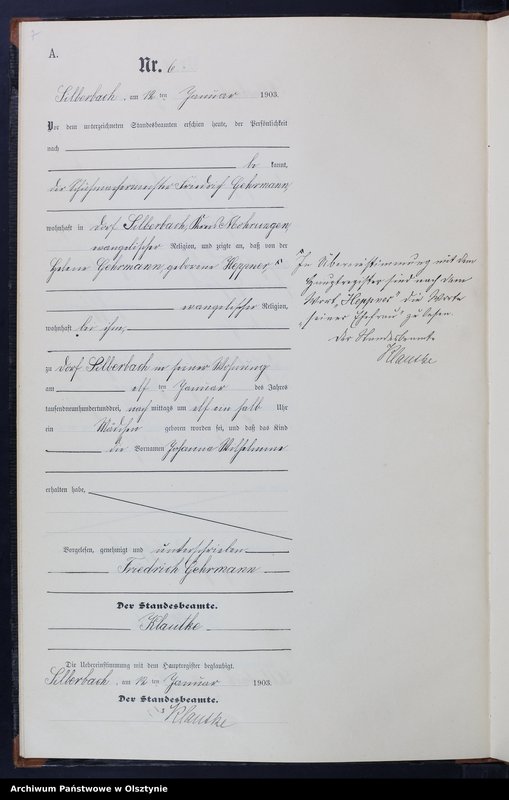 7
A.
Nr. 6
Silberbach, am 12 ten Januar 1903.
Vor dem unterzeichneten Standesbeamten erschien heute, der Persönlichkeit
nach
be kannt,
der Schuhmachermeister Friedrich Gehrmann
wohnhaft in Dorf Silberbach, Kreis Mohrungen
evangelischer Religion, und zeigte an, daß von der
Helene Gehrmann, geborene Heppner,
evangelischer Religion,
wohnhaft bei ihm,
zu Dorf Silberbach in seiner Wohnung
am elf ten Januar des Jahres
tausendneunhundertunddrei, nach mittags um elf ein halb Uhr
ein Mädchen geboren worden sei, und daß das Kind
die Vornamen Johanna Wilhelmine
erhalten habe,
Vorgelesen, genehmigt und unterschrieben
Friedrich Gehrmann
Der Standesbeamte.
Klautke
Die Uebereinstimmung mit dem Hauptregister beglaubigt.
Silberbach, am 12 ten Januar 1903.
Der Standesbeamte.
Klautke
In Übereinstimmung mit dem
Hauptregister sind nach dem
Wort "Heppner" die Worte
"seiner Ehefrau" zu lesen.
Der Standesbeamte
Klautke
Archiwum Państwowe w Olsztynie